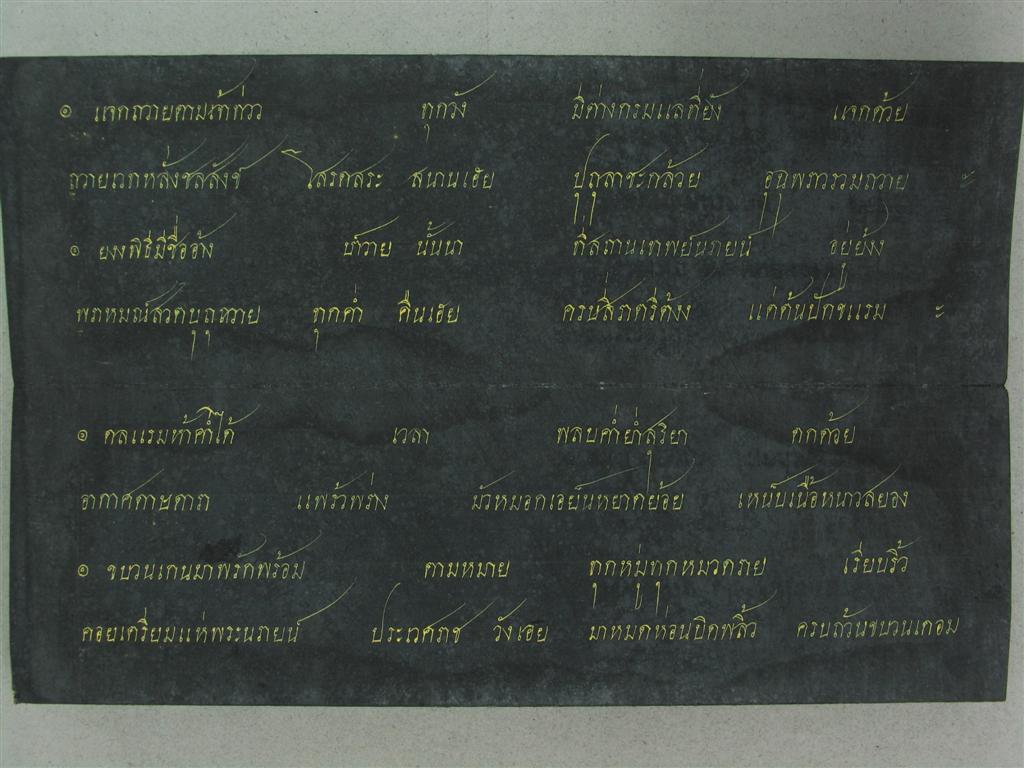 ๏ แจกถวายตามเจ้าทั่ว ทุกวัง มีต่างกรมแลที่ยัง แจกด้วย
ถวายเวกหลั่งชลสังข์ โสรดสระ สนานเฮย ปุถุลาชะกล้วย อุฉุพรรวรวมถวาย ะ
๏ ยงงพิธีมีชื่ออ้าง บำวาย นั้นนา ที่สถานเทพยันรายน์ อยู่ยั้งง
พราหมณ์สวดบูชถวาย ทุกค่ำ คืนเฮย ครบสี่ราตรีค้างง แต่ต้นปักขแรม ะ
๏ ดลแรมห้าค่ำได้ เวลา พลบค่ำย่ำสุริยา ตกด้วย
อากาศดาษดารา แพร้วพร่าง มัวหมอกเอย์นหยาดย้อย เหน็บเนื้อหนาวสยอง
๏ ขบวนเกนมาพรักพร้อม ตามหมาย ทุกหมู่ทุกหมวดราย เรียบริ้ว
คอยเตรียมแห่พระนรายน์ ประเวศราช วังเฮย มาหมดห่อนบิดพลิ้ว ครบถ้วนขบวนเคอม